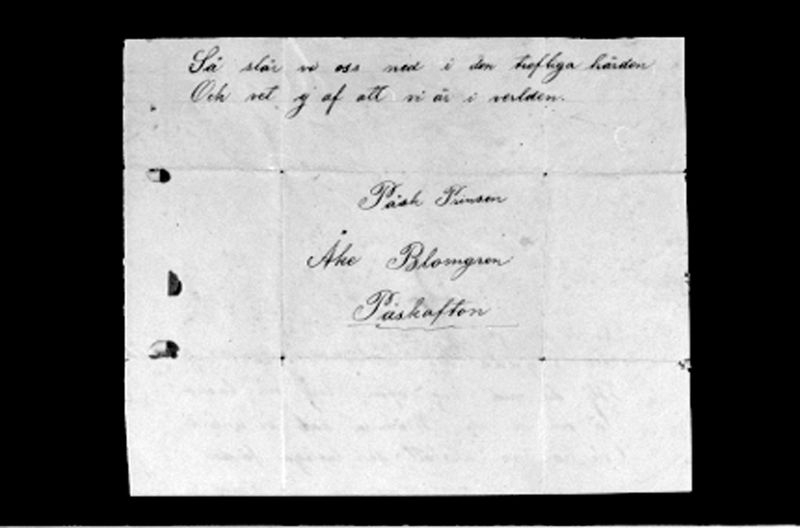 Så slår vi oss ned i den trefliga härden
Och vet ej af att vi är i verlden.
Påsk Prinsen
Åke Blomgren
Påskafton